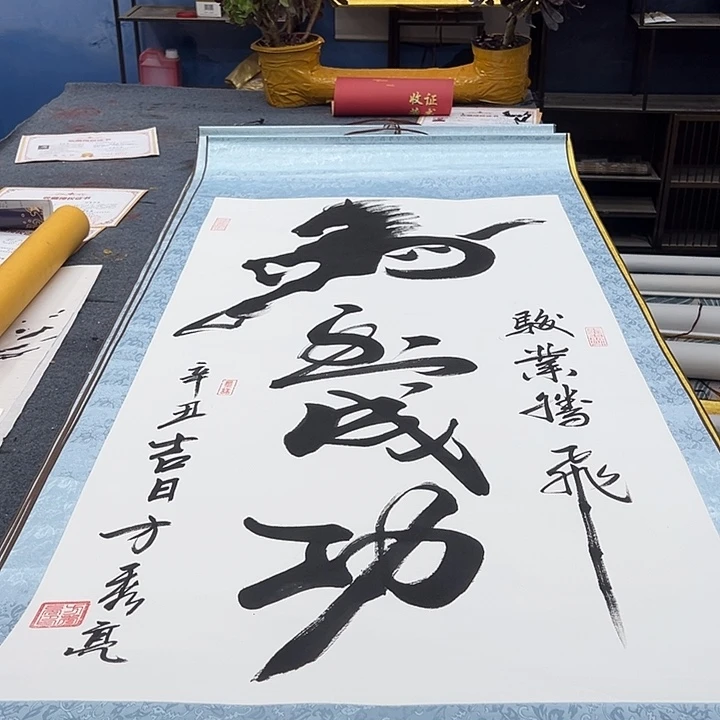 收证
駿業騰飛
馬到成功
辛丑吉日方秀亮